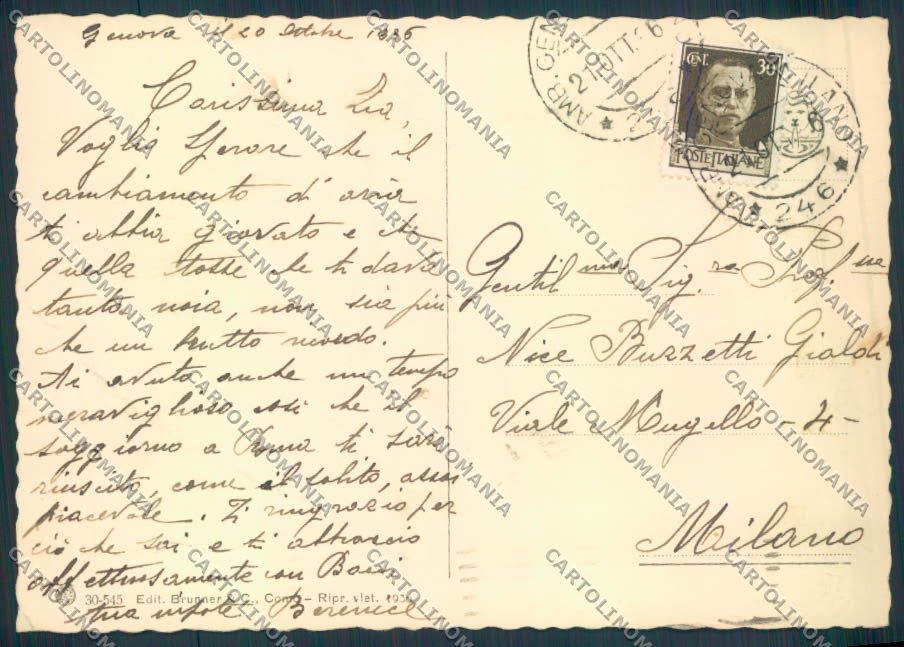 Genova il 20 Ottobre 1936
Carissima Zia,
Voglio sperare che il
cambiamento d'aria
ti abbia giovato e che
quella tosse che ti dava
tanta noia, non sia più
che un brutto ricordo.
Ai avuto anche un tempo
meraviglioso così che il
soggiorno a ti sarà
riuscito, come il solito, assai
piacevole. Ti ringrazio per
ciò che sai e ti abbraccio
affettuosamente con Baci
tua nipote Berenice
30-545 Edit. Brunner & C., Como - Ripr. viet. 193
AMB. GEN 21 OTT. 36
CENT. 30
POSTE ITALIANE
MILANO
246
Gentil.ma Sig.ra Prof.ssa
Nice Buzzetti Gialdi
Viale Mugello - 4 -
Milano
CARTOLINOMANIA